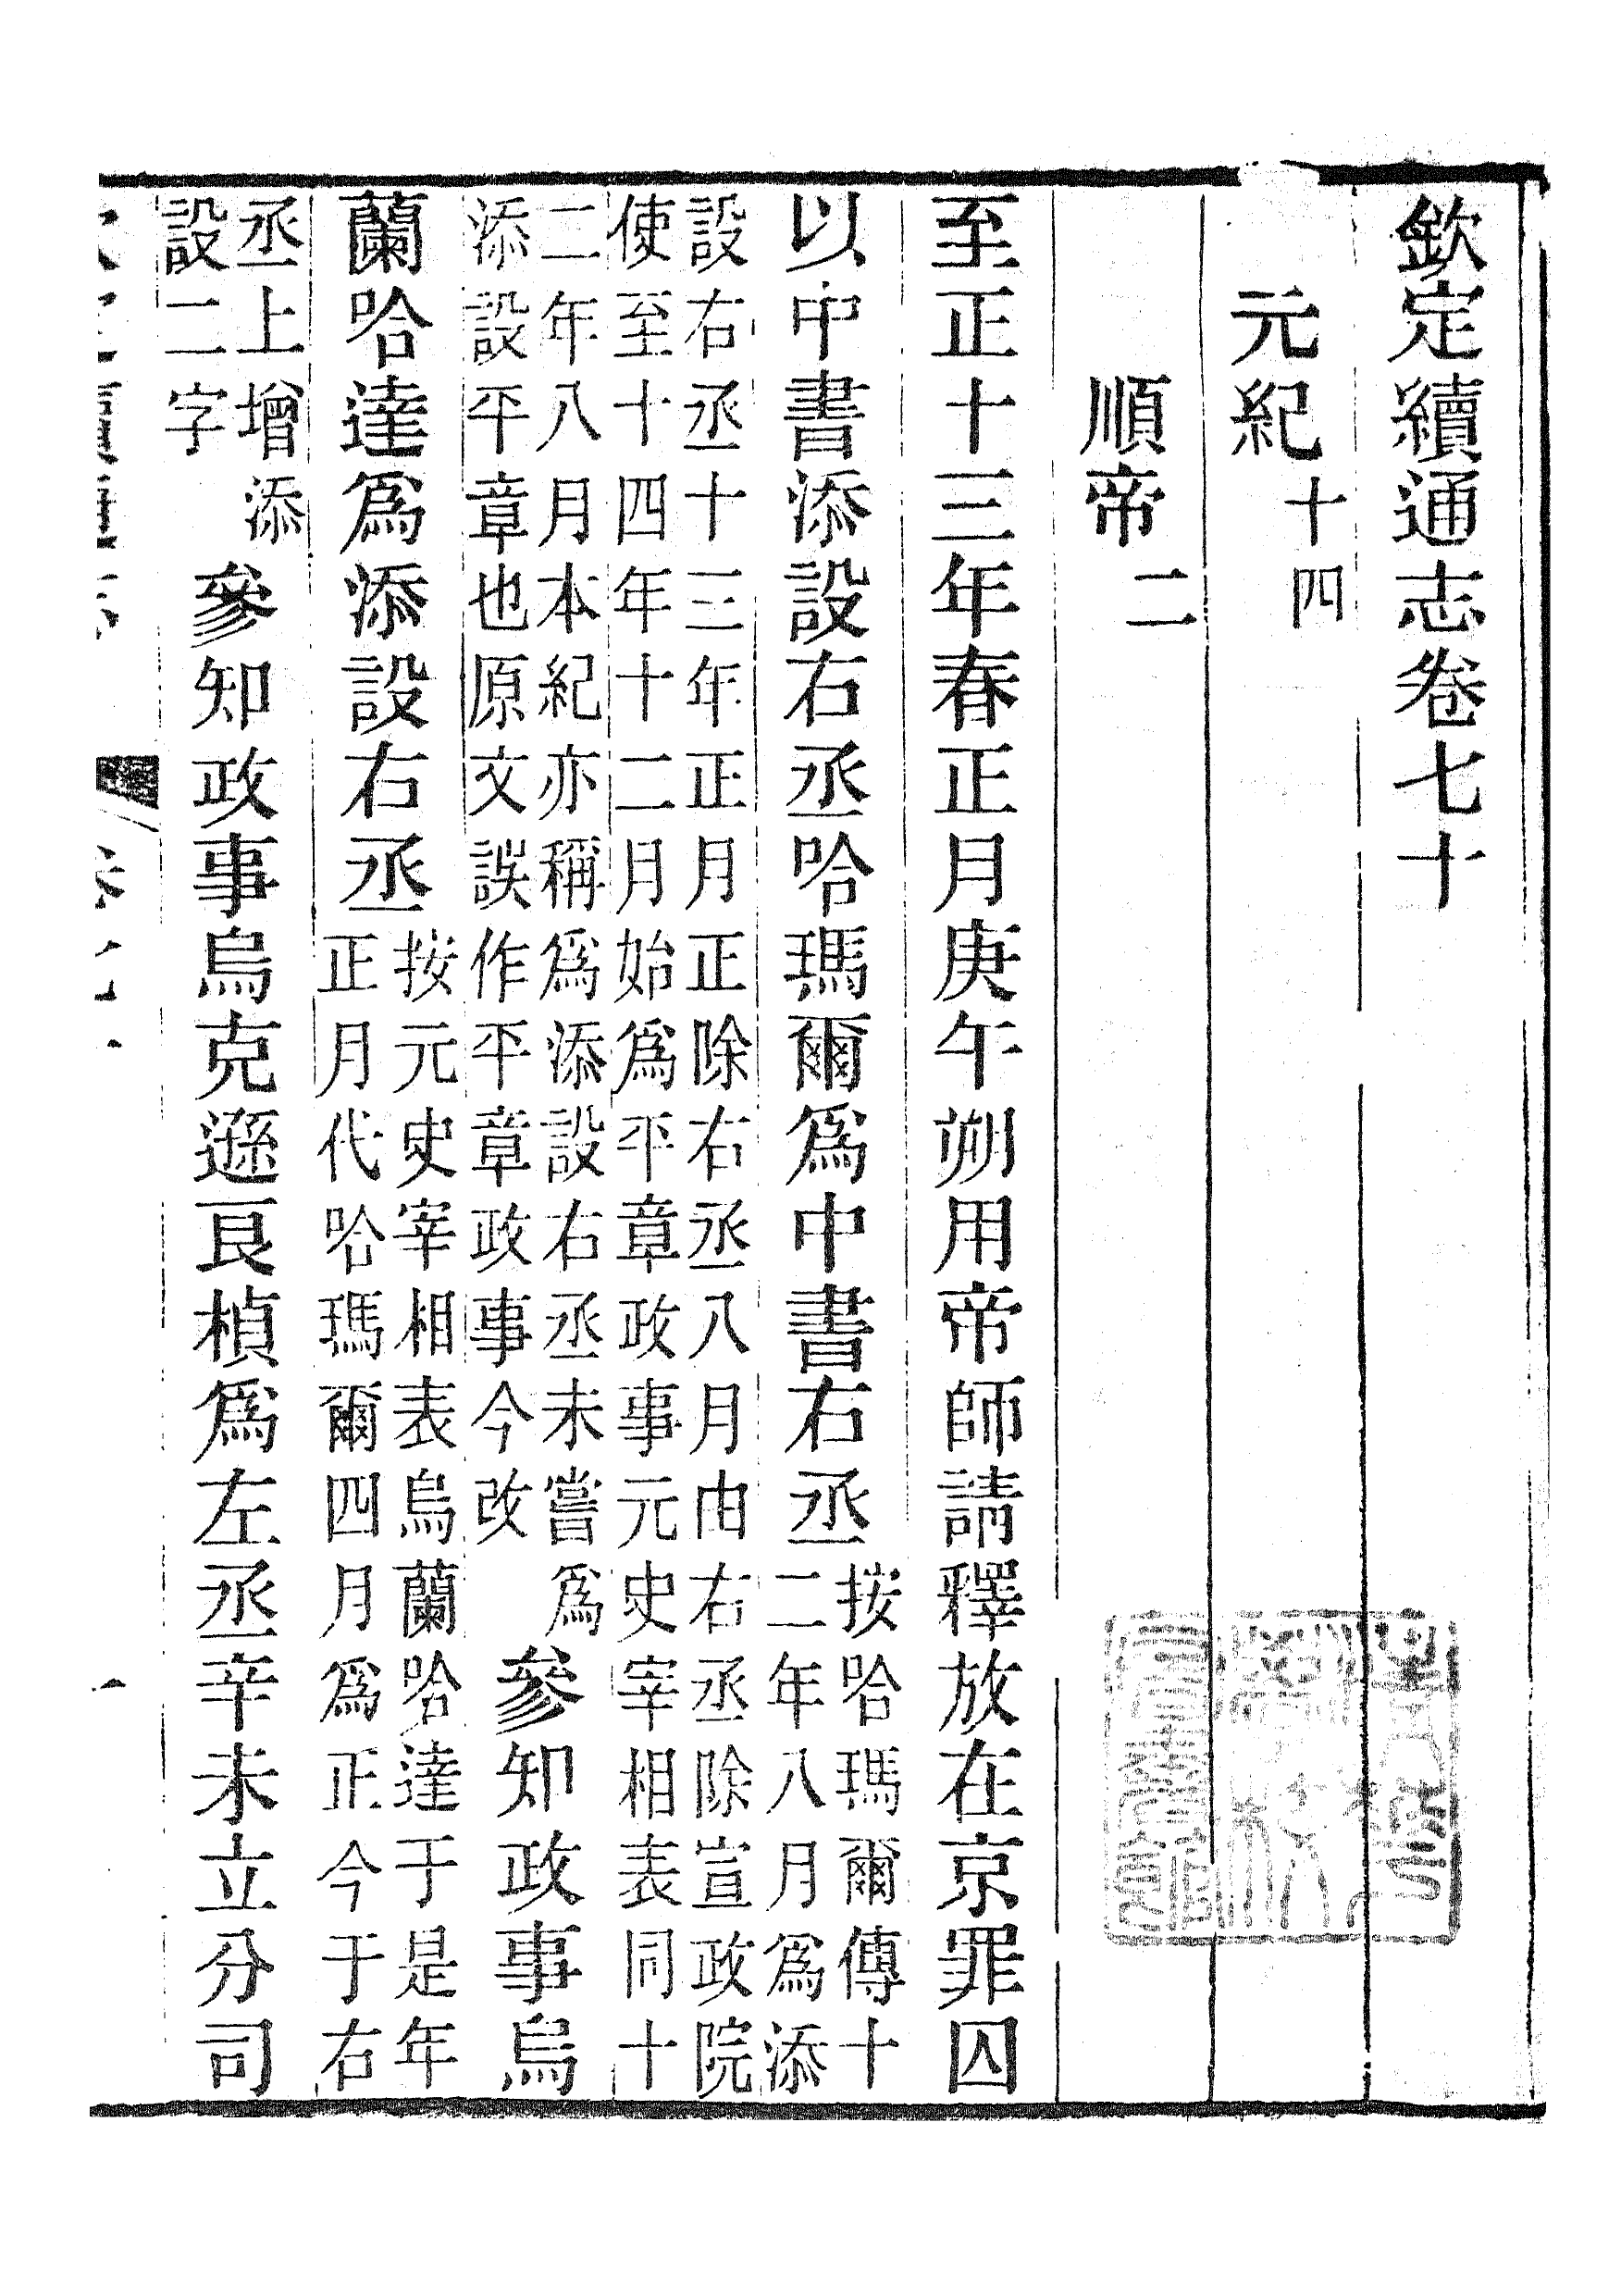 欽定續通志卷七十
元紀十四
順帝二
至正十三年春正月庚午朔用帝師請釋放在京罪囚
以中書添設右丞哈瑪爾爲中書右丞按哈瑪爾傳十
二年八月爲添
設右丞十三年正月正除右丞八月由右丞除宣政院
使至十四年十二月始爲平章政事元史宰相表同十
二年八月本紀亦稱爲添設右丞未嘗爲
添設平章也原文誤作平章政事今改
參知政事烏
蘭哈達爲添設右丞
按元史宰相表烏蘭哈達于是年
正月代哈瑪爾四月爲正今于右
丞上增添
設二字
參知政事烏克遜良楨爲左丞辛未立分司